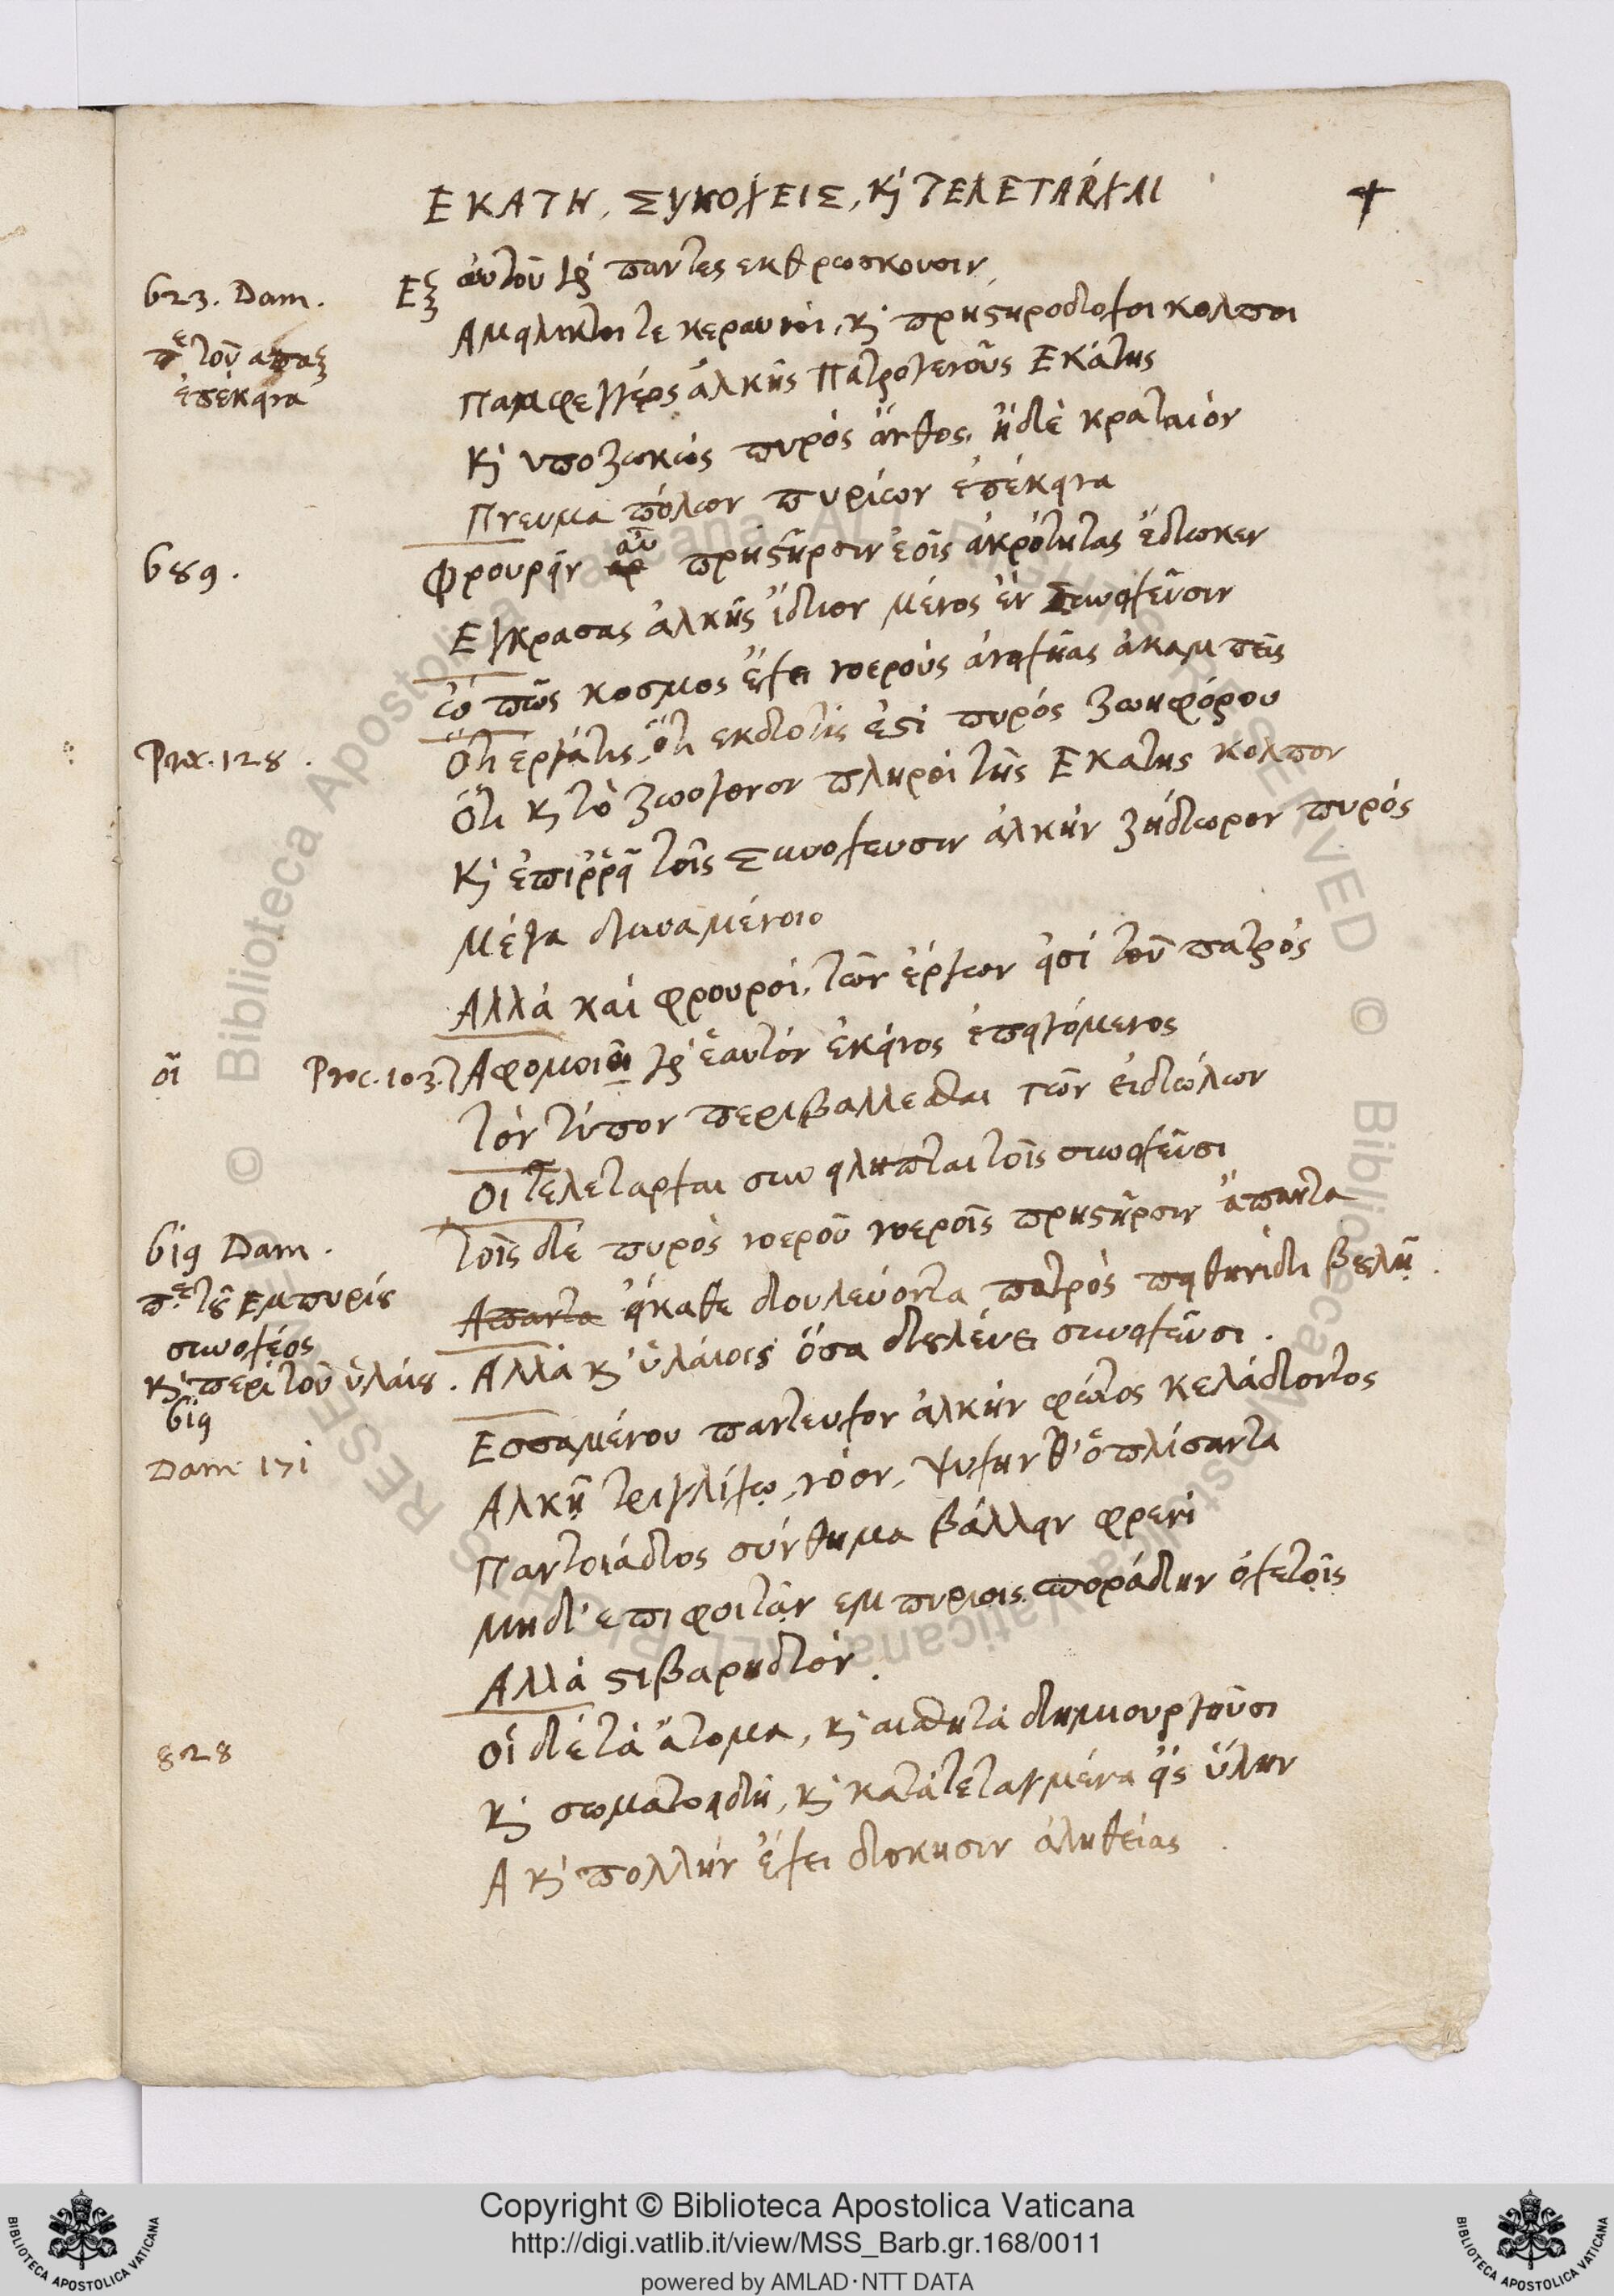 ΕΚΑΤΗ, ΣΥΝΟΧΕΙΣ, κὶ ΤΕΛΕΤΑΡΧΑΙ
623. Dam.
Ἐξ αὐτοῦ γὸ παντες εκθρωσκουσιν
Αμειλικτοι τε κεραυνοὶ, κὶ πρηστηροδοχοι κολποι
πε τοῦ απαξ
ἐπέκεινα
Παμφεγγέος ἀλκῆς Πατρογενοῦς Εκάτης
κὶ υποζωκὼς πυρὸς ἄνθος, ἠδὲ κραταιὸν
Πνευμα πόλων πυρίων ἐπέκεινα
689.
Φρουρεῖν αὖ πρηστῆρσιν ἑοῖς ἀκρότητας ἔδωκεν
Εγκρασας ἀλκῆς ἴδιον μένος ἐν Συνοχεῦσιν
ὢ πῶς κοσμος ἔχει νοεροὺς ἀνοχῆας ἀκαμπεῖς
Proc. 128.
Ὅτι εργάτις, ὅτι εκδοτίς ἐστὶ πυρὸς ζωηφόρου
Ὅτι κὶ τὸ ζωογονον πληροῖ τῆς Εκατης κολπον
κὶ ἐπιῤῥεῖ τοῖς Συνοχευσιν ἀλκὴν ζήδωρον πυρὸς
Μέγα δυναμένοιο
Αλλὰ καὶ φρουροὶ, τῶν ἐργων εἰσὶ τοῦ πατρὸς
οῖ Proc. 103. Αφομοιοῖ γὸ ἑαυτὸν ἐκεῖνος ἐπειγόμενος
Τὸν τύπον περιβαλλεσθαι τῶν εἰδώλων
Οἱ τελεταρχαι συνειληπται τοῖς συνοχεῦσι
619 Dam.
Τοῖς δὲ πυρὸς νοεροῦ νοεροῖς πρηστῆρσιν ἅπαντα
πε τῦ Εμπυρίς
Απαντα εἴκαθε δουλεύοντα πατρὸς πειθηνίδι βελῇ.
συνοχέος
κὶ περὶ τοῦ ὑλάιυ. Αλλὰ κὶ ὑλάιοις ὅσα δουλέυει συνοχεῦσι.
619
Εσσαμένου παντευχον ἀλκὴν φωτος κελάδοντος
Dam 171
Αλκῇ τριγλίχῳ, νόον, ψυχην θ' ὁπλίσαντα
Παντοιάδος σύνθημα βάλλειν φρενὶ
Μηδ' επιφοιτᾷν εμπυριοις σποράδην ὀχετοῖς
Αλλὰ στιβαρηδὸν.
828
Οἱ δὲ τὰ ἄτομα, κὶ αισθητὰ δημιουργοῦσι
κὶ σωματοειδῆ, κὶ κατατεταγμένα εἰς ὕλην
Α κὶ πολλὴν ἔχει διοκησιν ἀληθείας
Copyright © Biblioteca Apostolica Vaticana
http://digi.vatlib.it/view/MSS_Barb.gr.168/0011
powered by AMLAD·NTT DATA
BIBLIOTECA APOSTOLICA VATICANA
BIBLIOTECA APOSTOLICA VATICANA
© Biblioteca Apostolica Vaticana ALL RIGHTS RESERVED
© Biblioteca Apostolica Vaticana ALL RIGHTS RESERVED